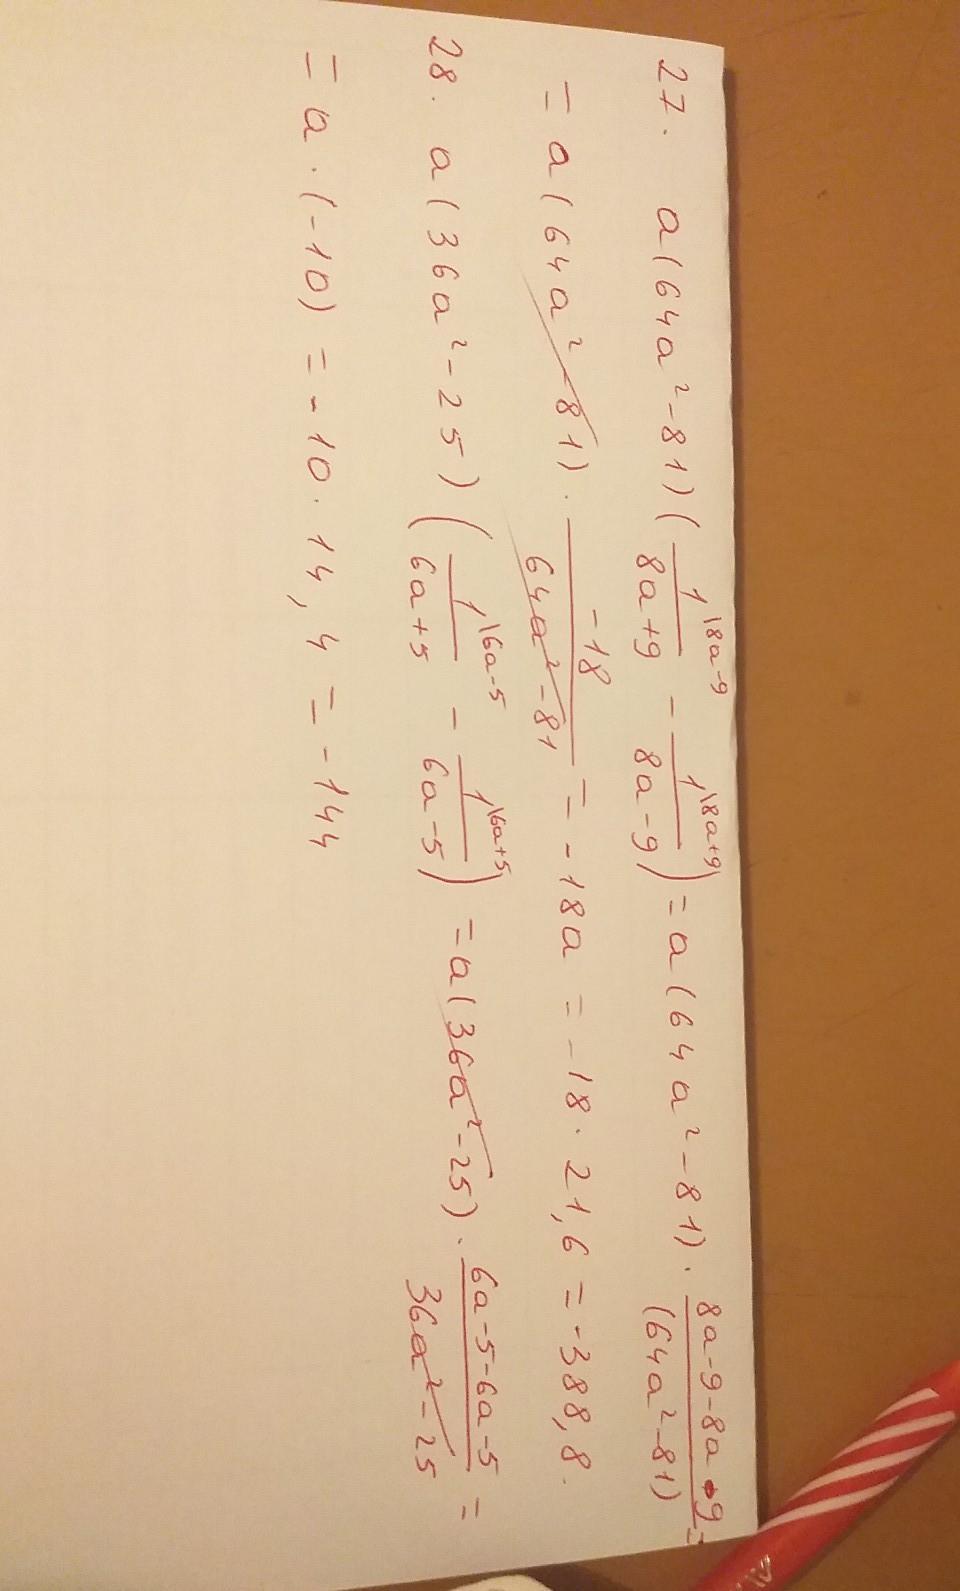 27. a(64a²-81)(1\8a-9/8a+9 - 1\8a+9/8a-9) = a(64a²-81)·8a-9-8a-9/(64a²-81) =
= a(64a²-81)·-18/64a²-81 = -18a = -18·21,6 = -388,8.
28. a(36a²-25)(1\6a-5/6a+5 - 1\6a+5/6a-5) = a(36a²-25)·6a-5-6a-5/36a²-25 =
= a·(-10) = -10·14,4 = -144